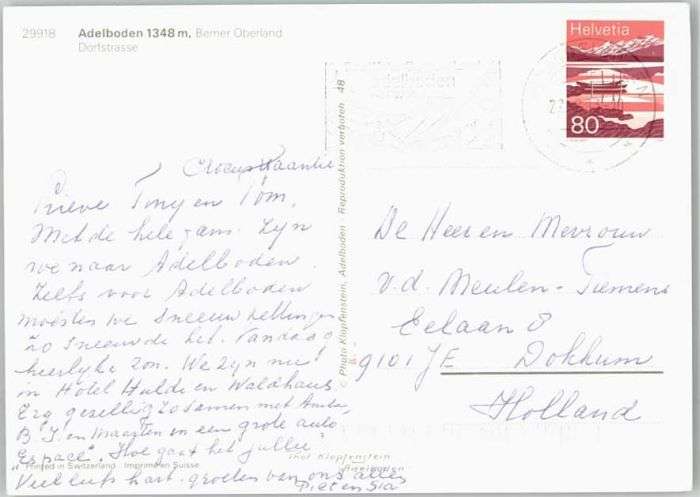 29918 Adelboden 1348 m, Berner Oberland
Dorfstrasse
Helvetia
80
Adelboden
48
© Photo Klopfenstein, Adelboden · Reproduktion verboten
Lieve Tiny en Tom,
Met de hele gans. Zijn
we naar Adelboden.
Zelfs voor Adelboden
moesten we Sneeuwkettingen
zo sneeuwde het. Vandaag
heerlijke zon. We zijn nu
in Hotel Huldi en Waldhaus
Erg gezellig zo samen met
B. J. en Maarten in een grote auto
"Espace". Hoe gaat het jullie
Veel liefs hart. groeten van ons allen
Piet en Sia
De Heer en Mevrouw
v.d. Meulen-Siemens
Eelaan 8
9101 JE Dokkum
Holland
Photo Klopfenstein
Adelboden
Printed in Switzerland · Imprimé en Suisse